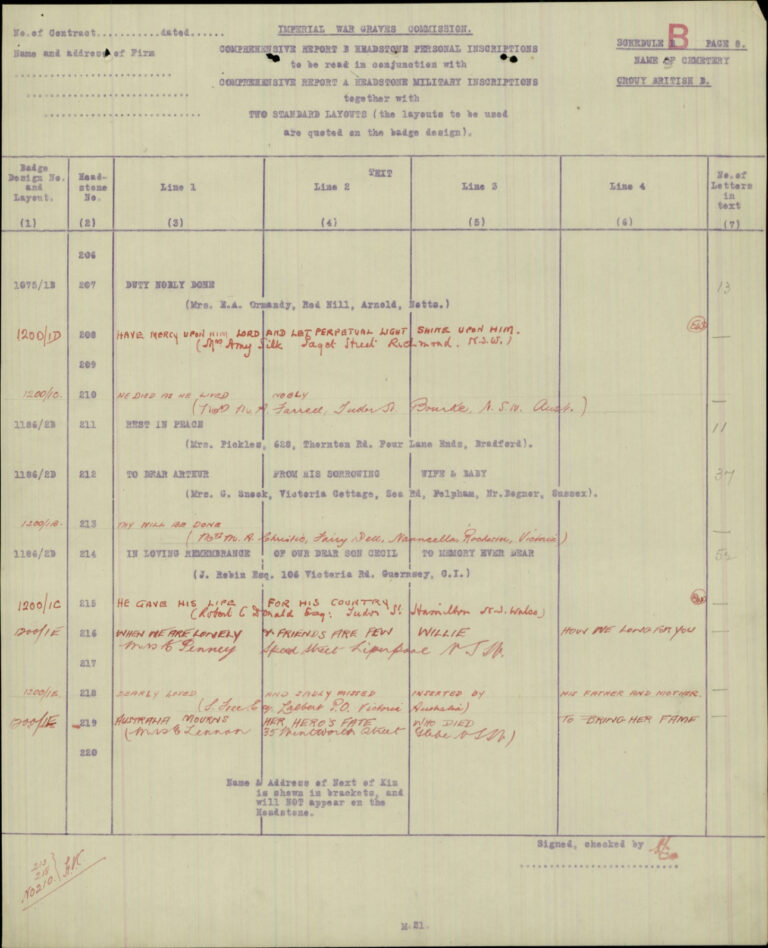 No. of Contract...........dated......
Name and address of Firm
IMPERIAL WAR GRAVES COMMISSION.
COMPREHENSIVE REPORT B HEADSTONE PERSONAL INSCRIPTIONS
to be read in conjunction with
COMPREHENSIVE REPORT A HEADSTONE MILITARY INSCRIPTIONS
together with
TWO STANDARD LAYOUTS (the layouts to be used
are quoted on the badge design).
SCHEDULE B PAGE 8.
NAME OF CEMETERY
CROUY BRITISH B.
Badge Design No. and Layout. (1)
Head-stone No. (2)
TEXT
Line 1 (3)
Line 2 (4)
Line 3 (5)
Line 4 (6)
No. of Letters in text (7)
206
1075/1B 207 DUTY NOBLY DONE 13
(Mrs. E.A. Ormandy, Red Hill, Arnold, Notts.)
1200/1D 208 HAVE MERCY UPON HIM LORD AND LET PERPETUAL LIGHT SHINE UPON HIM. —
(Mrs Amy Silk Paget Street Richmond. N.S.W.)
209
1200/1C. 210 HE DIED AS HE LIVED NOBLY —
(Mrs M. A. Farrell, Tudor St. Bourke, N.S.W. Aust.)
1186/2D 211 REST IN PEACE 11
(Mrs. Pickles, 628, Thornton Rd. Four Lane Ends, Bradford).
1186/2D 212 TO DEAR ARTHUR FROM HIS SORROWING WIFE & BABY 37
(Mrs. G. Snook, Victoria Cottage, Sea Rd, Felpham, Nr. Bognor, Sussex).
1200/1A. 213 THY WILL BE DONE —
(Mrs M. A. Christie, Fairy Dell, Nanneella, Rochester, Victoria)
1186/2D 214 IN LOVING REMEMBRANCE OF OUR DEAR SON CECIL TO MEMORY EVER DEAR
(J. Robin Esq. 106 Victoria Rd. Guernsey, C.I.)
1200/1C 215 HE GAVE HIS LIFE FOR HIS COUNTRY —
(Robert C Donald Esq. Tudor St. Hamilton N.S. Wales)
1200/1E 216 WHEN WE ARE LONELY & FRIENDS ARE FEW WILLIE HOW WE LONG FOR YOU —
Mrs E Penney Speed Street Liverpool N.S.W.
217
1200/1E. 218 DEARLY LOVED AND SADLY MISSED INSERTED BY HIS FATHER AND MOTHER. —
Lalbert P.O. Victoria Australia)
1200/1E 219 AUSTRALIA MOURNS HER HERO'S FATE WHO DIED TO BRING HER FAME —
(Mrs E Lennon 35 Wentworth Street Glebe N.S.W)
220
Name & Address of Next of Kin
is shewn in brackets, and
will NOT appear on the
Headstone.
Signed, checked by
213
215
No 210.
M.21.